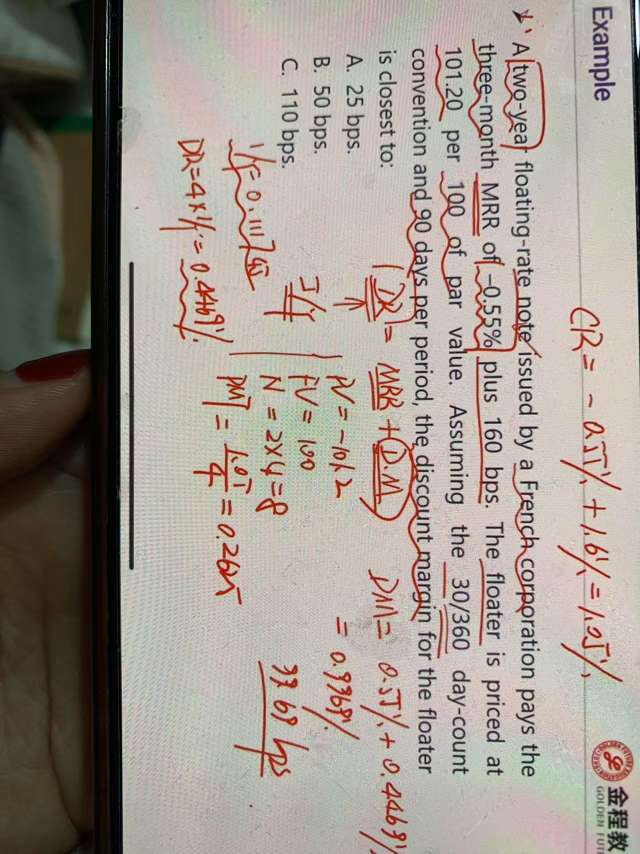 Example
金程教
GOLDEN FUTU
CR = -0.55% + 1.6% = 1.05%
A two-year floating-rate note issued by a French corporation pays the
three-month MRR of -0.55% plus 160 bps. The floater is priced at
101.20 per 100 of par value. Assuming the 30/360 day-count
convention and 90 days per period, the discount margin for the floater
is closest to:
A. 25 bps.
B. 50 bps.
C. 110 bps.
DR = MRR + D.M
DM = 0.55% + 0.4469%
= 0.9969%
99.69 bps
PV = -101.2
FV = 100
N = 2×4=8
PMT = 1.05/4 = 0.2625
I/Y
I/Y = 0.1117
DR = 4×I/Y = 0.4469%